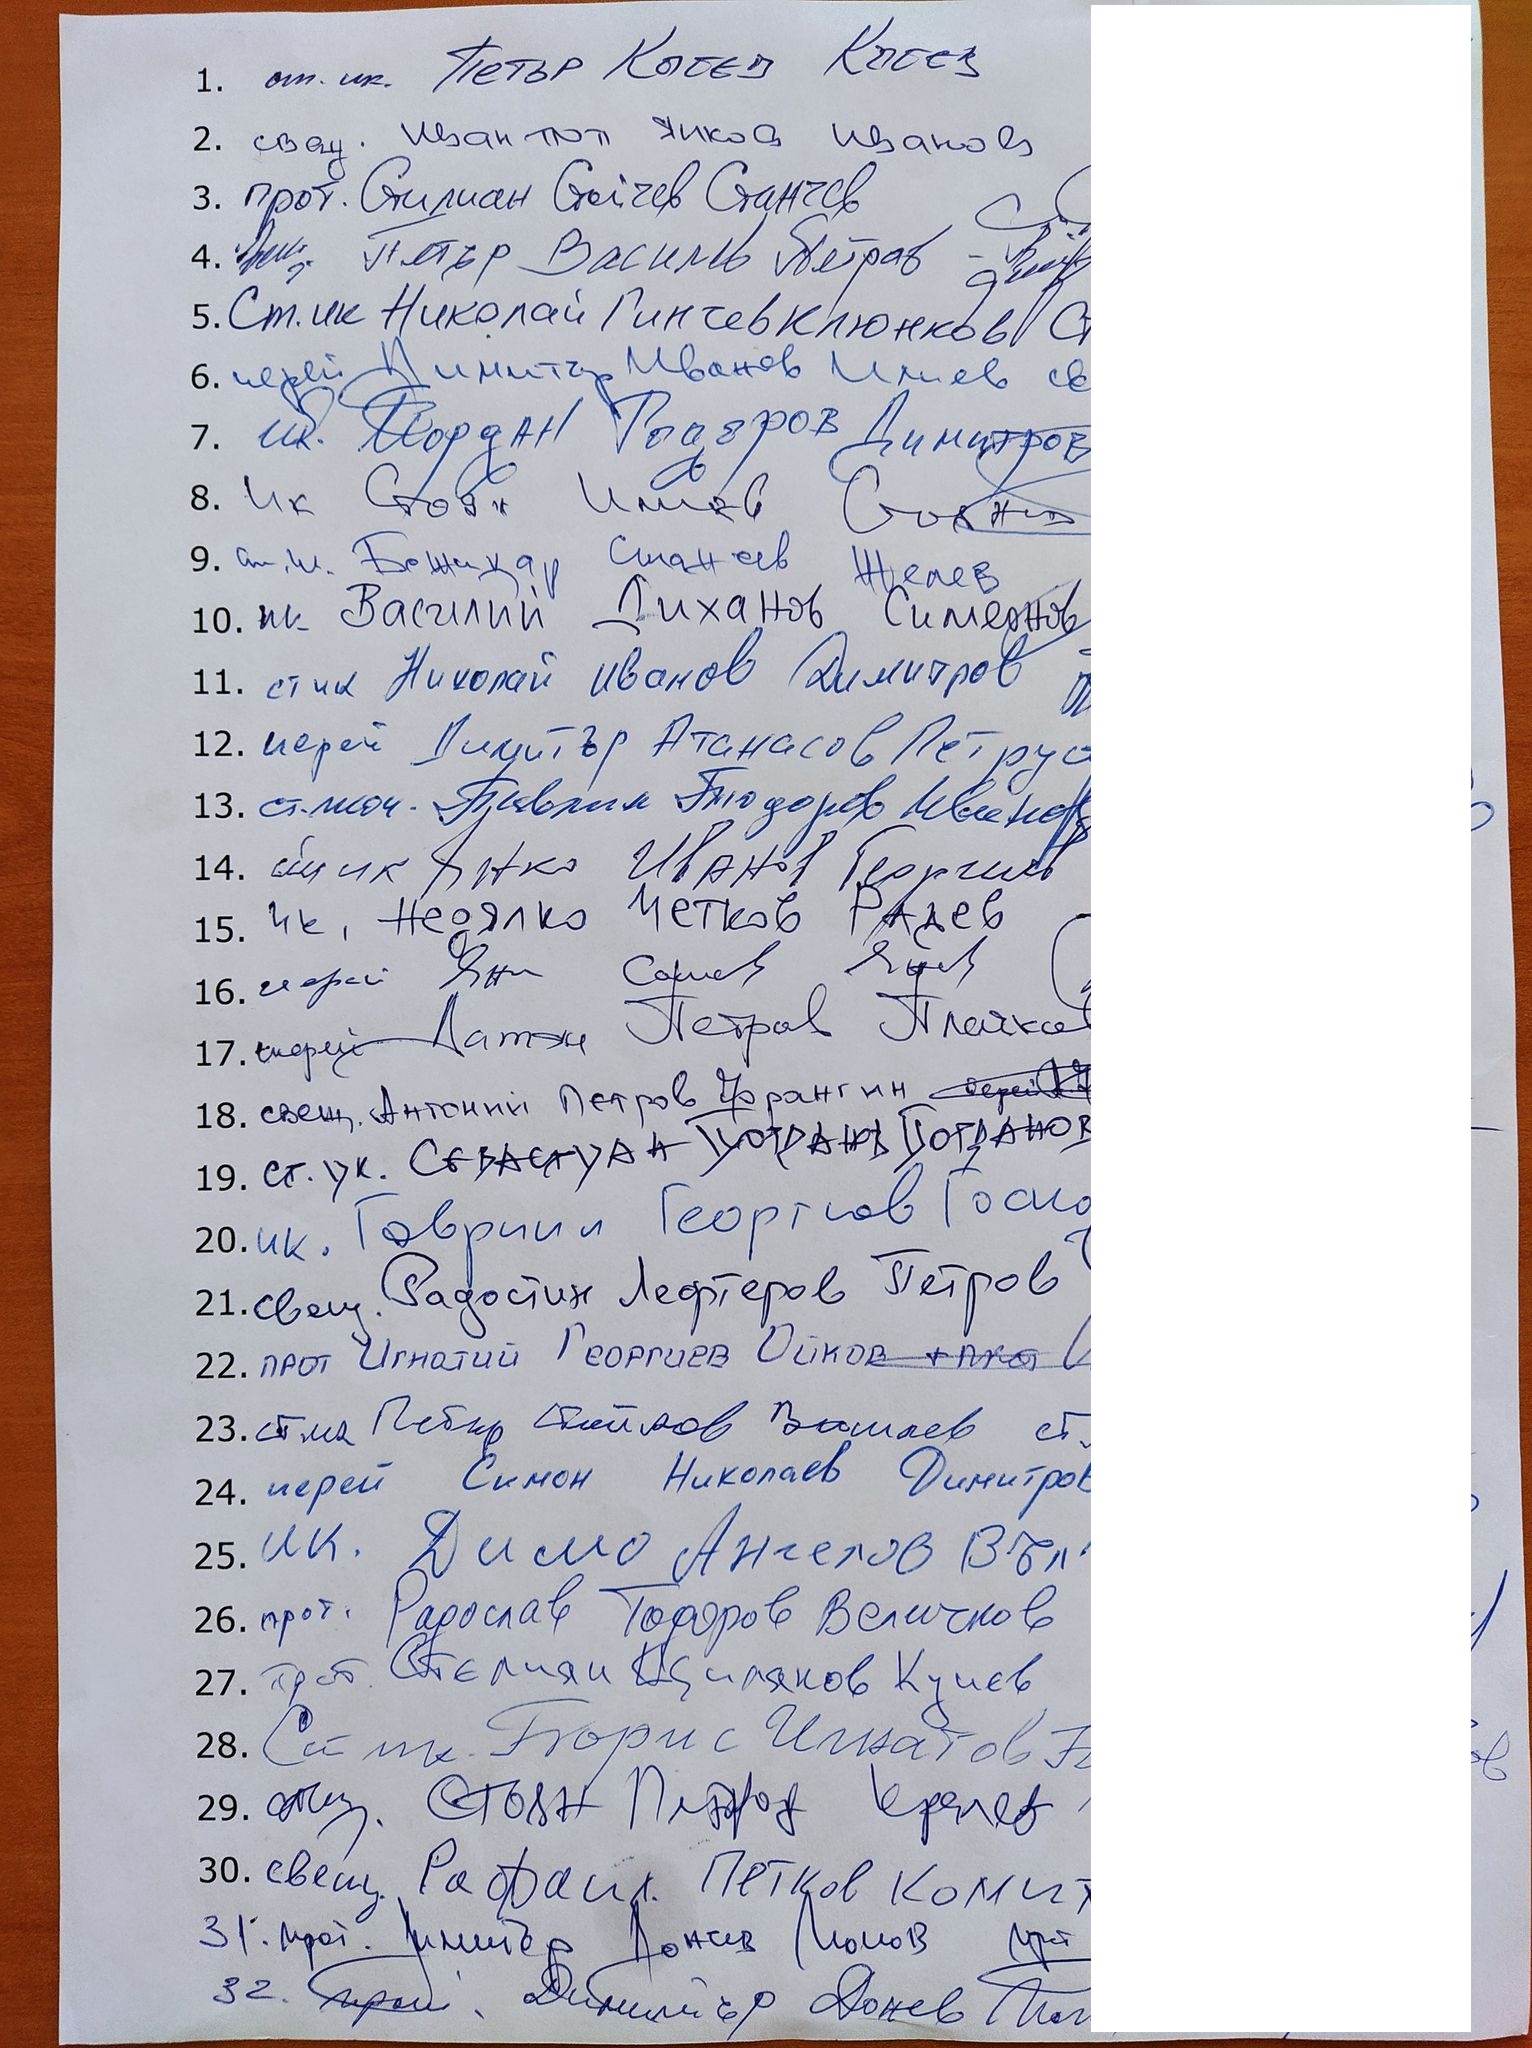 1. от. ик. Петър Костов
2. свещ. Иван поп Янков Иванов
3. прот. Стилиан Стойчев Станчев
4. Петър Василев Петров
5. Ст. ик Николай Гинчев Клюнков Ст
6. иерей Димитър Иванов Илиев св
7. ик. Йордан Тодоров Димитров
8. ик Стоян Илиев Стоянов
9. ст. ик. Божидар Станчев Желев
10. ик Василий Диханов Симеонов
11. ст ик Николай Иванов Димитров
12. иерей Димитър Атанасов Петрус
13. Павлин Тодоров Иванов
14. ст ик Янко Иванов Георгиев
15. ик. Недялко Четков Радев
16. иерей Яни
17. иерей Петров Плачков
18. свещ. Антоний Петров Франгин
19. ст. ик. Севастиан Богданов Богданов
20. ик. Гавриил Георгиев Госпо
21. свещ. Радостин Лефтеров Петров
22. прот Игнатий Георгиев Ойков + прот
23. ст ик Петър Стойков Василев ст.
24. иерей Симон Николаев Димитров
25. ик. Димо Ангелов Въл
26. прот. Радослав Тодоров Величков
27. прот. Стелиян Куцев
28. Ст ик. Борис Игнатов
29. Стоян Кралев
30. свещ. Рафаил Петков Комит
31. прот. Димитър Дончев Попов прот
32. Димитър Донев Поп